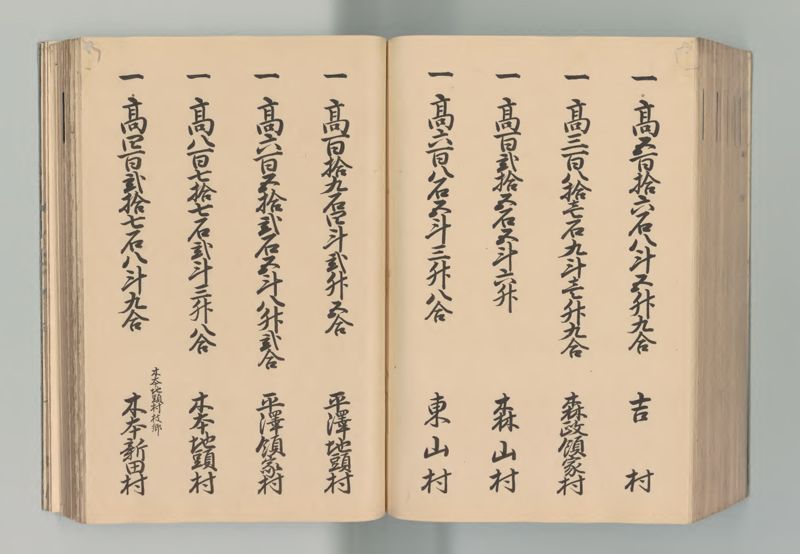 一 高五百拾六石八斗五升九合 吉村
一 高三百八拾壱石九斗壱升九合 森政領家村
一 高百弐拾五石五斗六升 森山村
一 高六百八石五斗三升八合 東山村
一 高百拾九石四斗弐升五合 平澤地頭村
一 高六百五拾弐石五斗八升弐合 平澤領家村
一 高八百七拾七石弐斗三升八合 木本地頭村
木本地頭村枝郷
一 高四百弐拾七石八斗九合 木本新田村